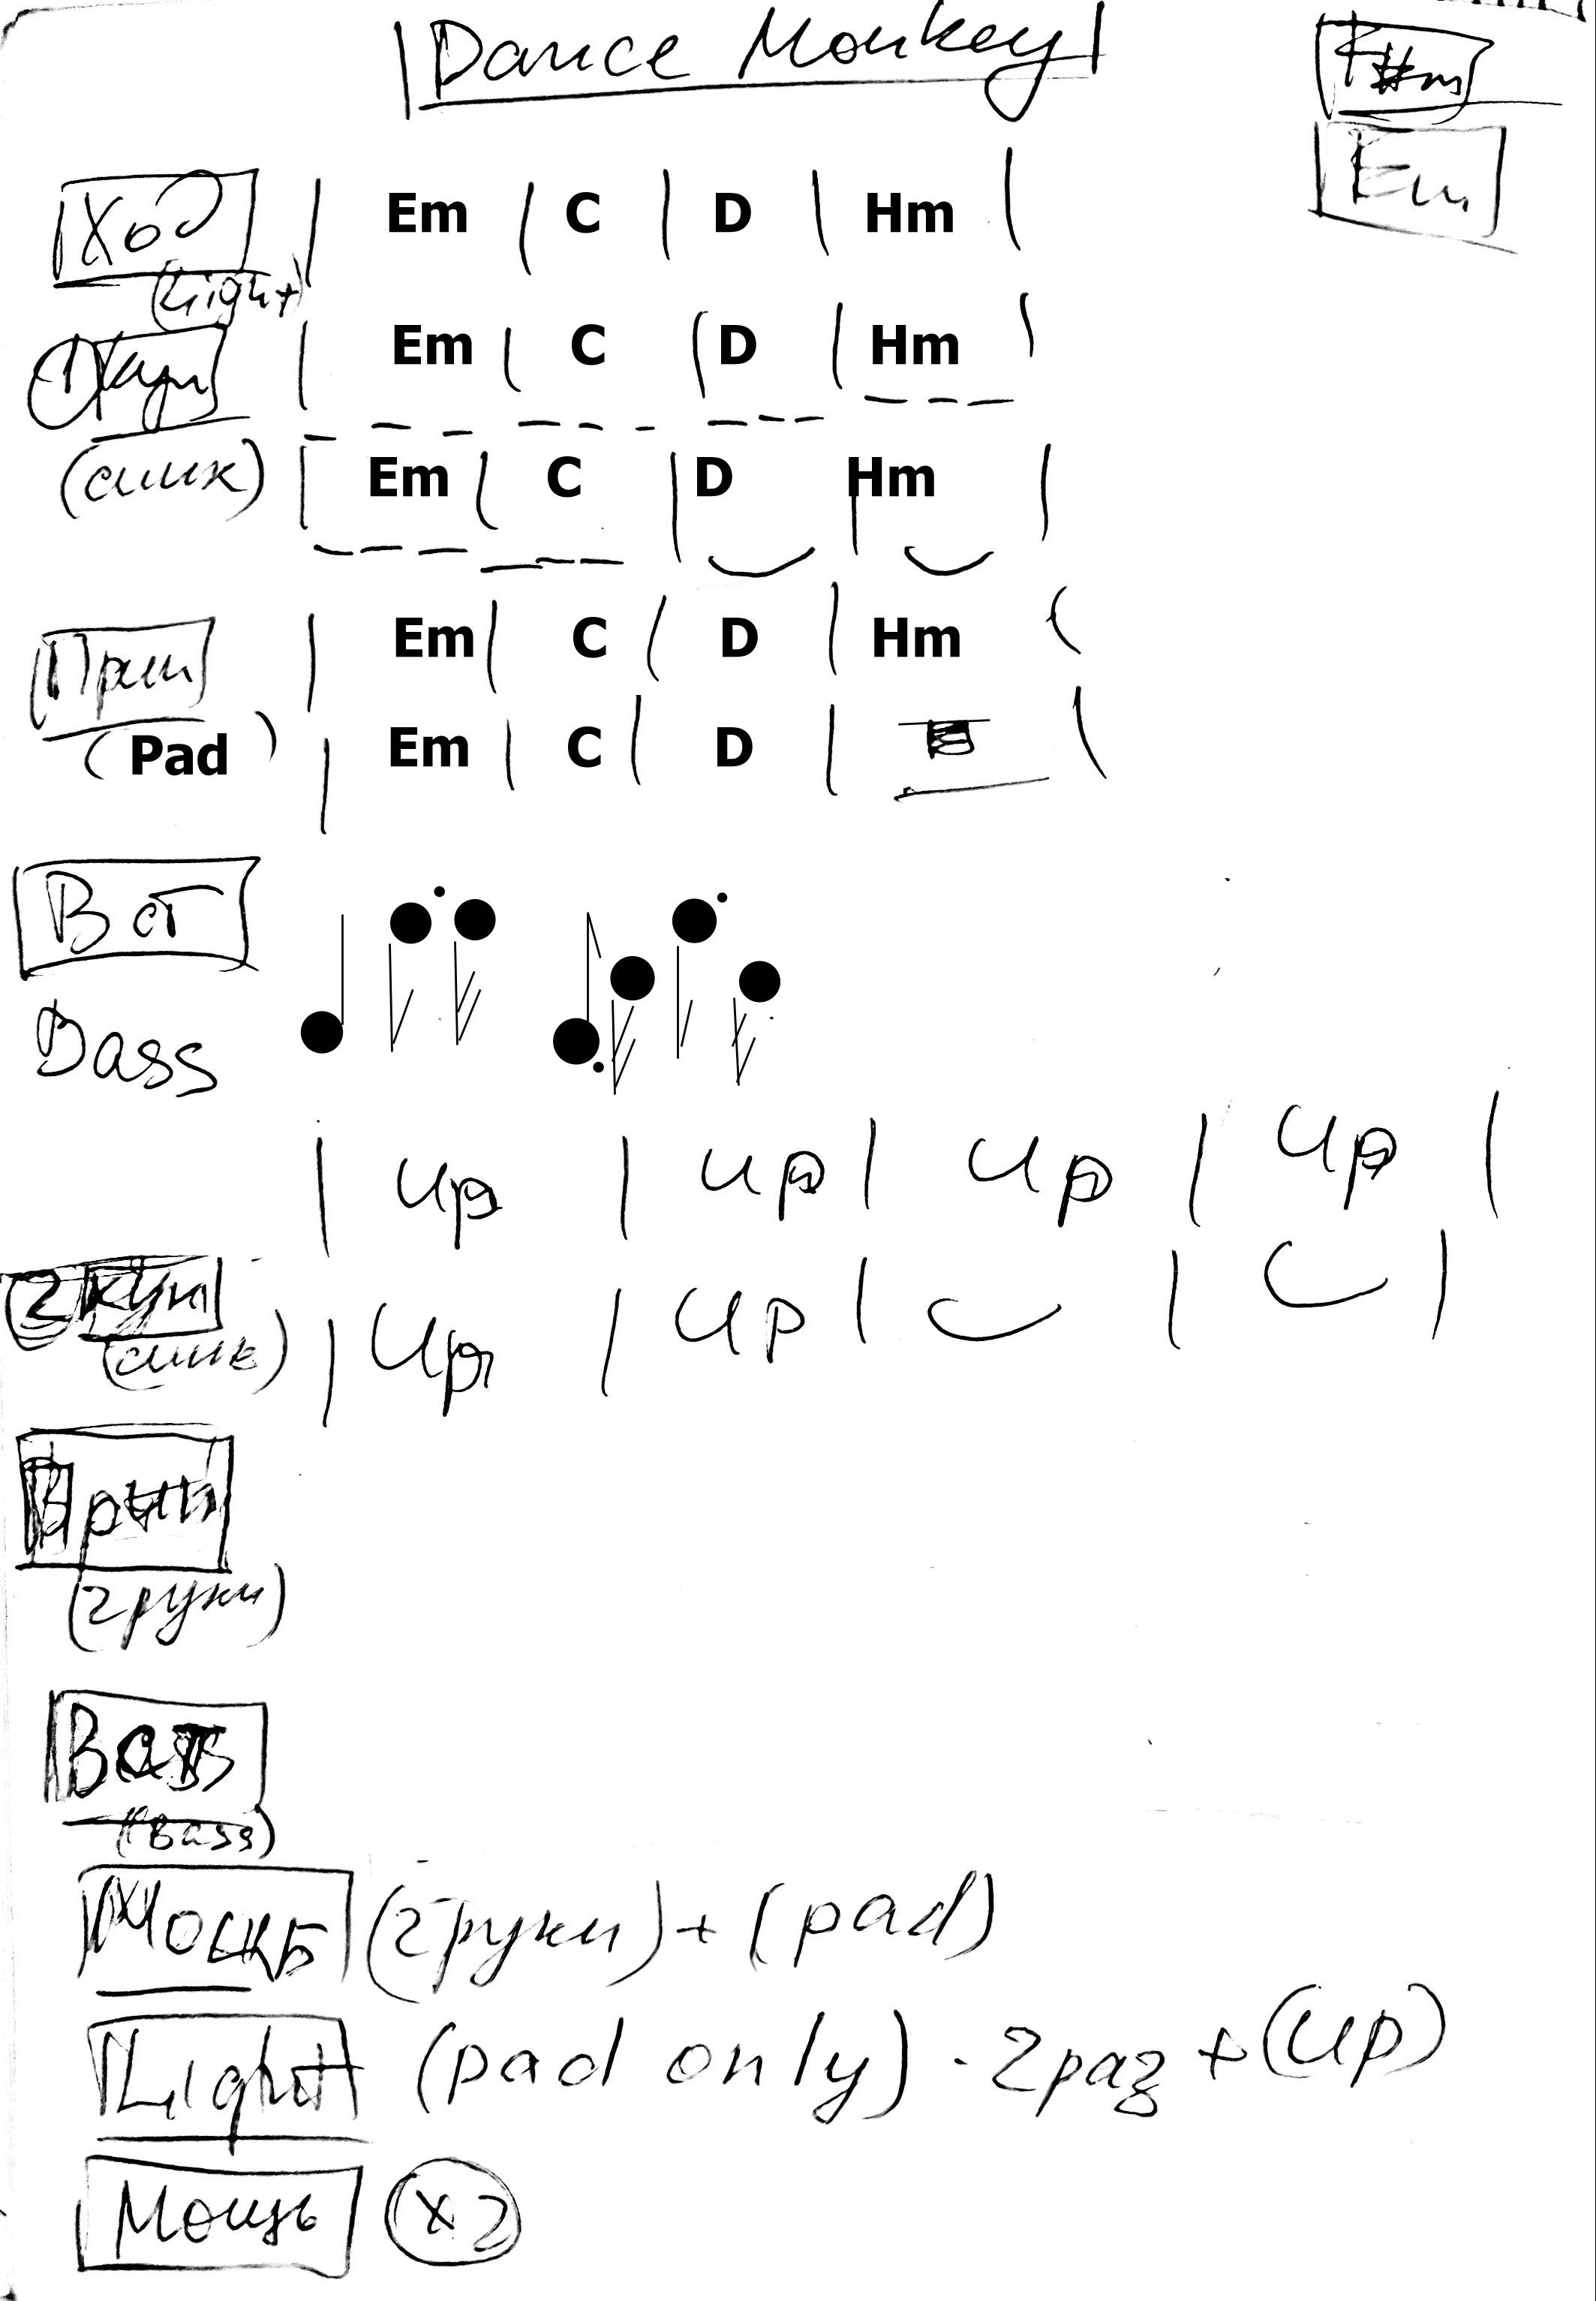 Dance Monkey
F#m
Em
Ход | Em | C | D | Hm |
(Light)
1 куп | Em | C | D | Hm |
(синк) | Em | C | D | Hm |
Прип | Em | C | D | Hm |
(Pad) | Em | C | D | |
Вст
Bass
| Up | Up | Up | Up |
2 куп
(синк) | Up | Up | | |
Прип
(2 руки)
Вст
(Bass)
Мощь (2 руки) + (pad)
Light (pad only) · 2 раз + (Up)
Мощь x2